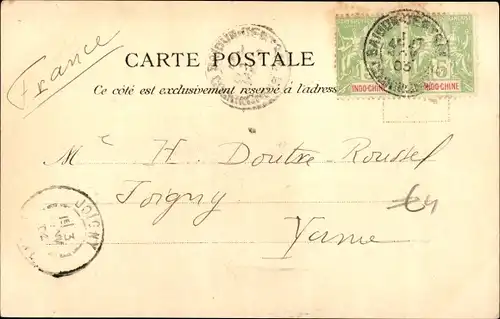 France
CARTE POSTALE
Ce côté est exclusivement réservé à l'adresse
5 INDO-CHINE
5 INDO-CHINE
SAIGON-CENTRAL
Mr H. Doutre-Roussel
Joigny
Yonne
64
JOIGNY